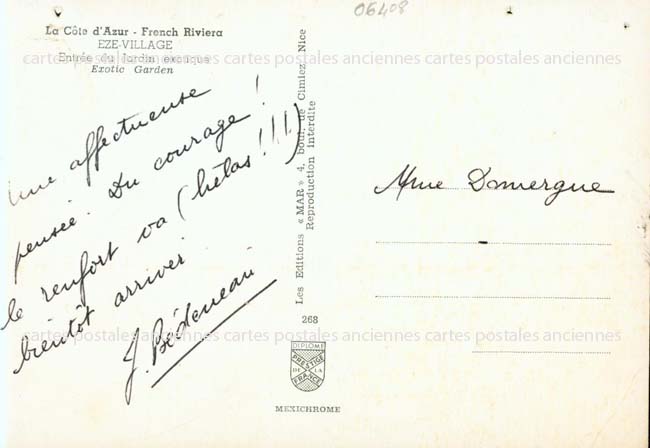 06408
La Côte d'Azur - French Riviera
EZE-VILLAGE
Entrée du Jardin exotique
Exotic Garden
cartes postales anciennes cartes postales anciennes cartes postales anciennes
Une affectueuse
pensée. Du courage !
le renfort va (hélas !!!)
bientôt arriver
Les Editions « MAR » 4, boul. de Cimiez, Nice
Reproduction interdite
Mme Domergue
268
cartes postales anciennes cartes postales anciennes cartes postales anciennes
DIPLOME
PRESTIGE
DE LA
FRANCE
MEXICHROME